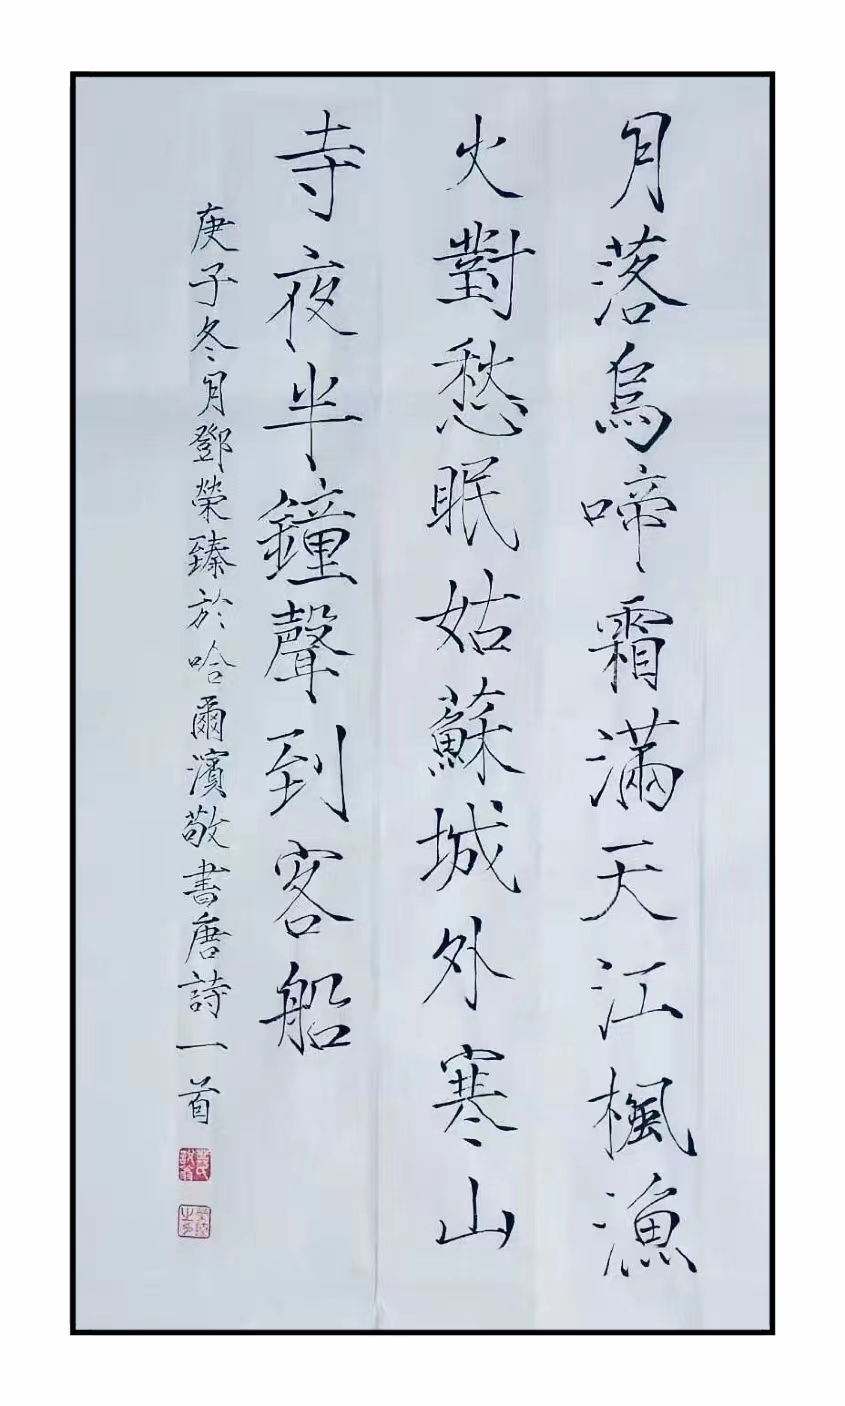 月落烏啼霜滿天江楓漁
火對愁眠姑蘇城外寒山
寺夜半鐘聲到客船
庚子冬月鄧榮臻於哈爾濱敬書唐詩一首